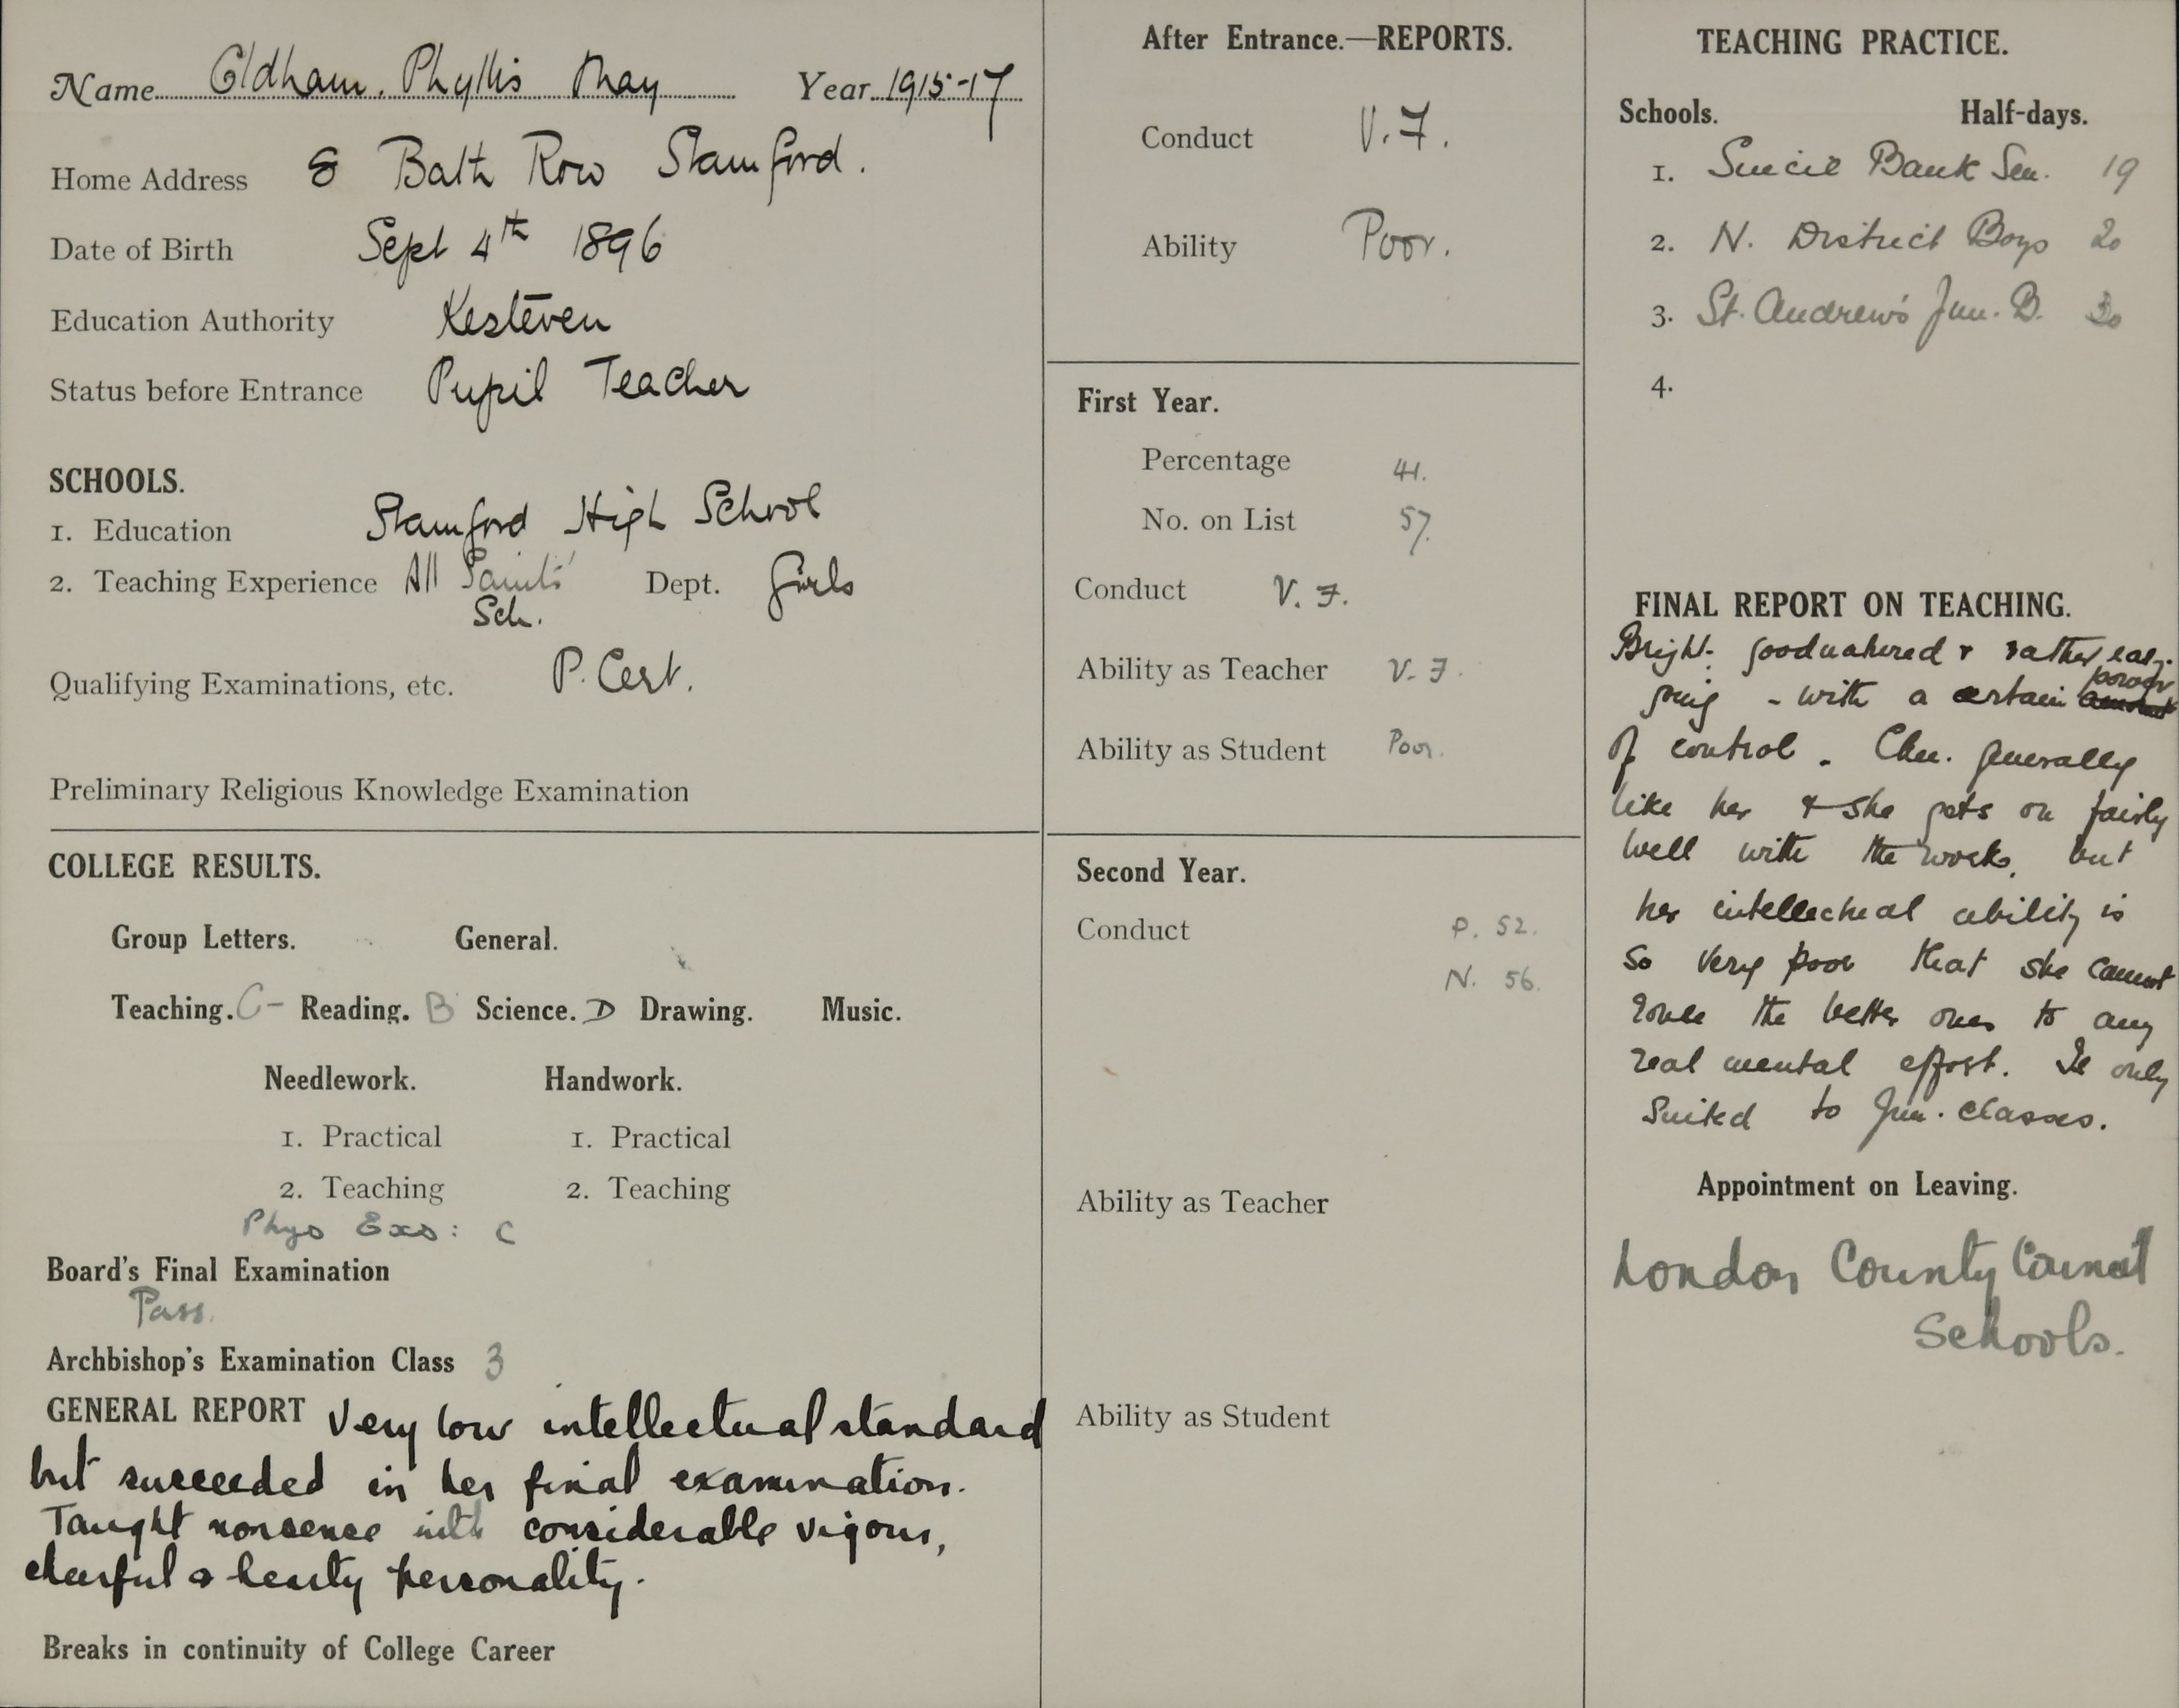 Name Oldham. Phyllis May Year 1915-17
Home Address 8 Bath Row Stamford.
Date of Birth Sept 4th 1896
Education Authority Kesteven
Status before Entrance Pupil Teacher
SCHOOLS.
1. Education Stamford High School
2. Teaching Experience All Saints' Dept. Girls
Sch.
Qualifying Examinations, etc. P. Cert.
Preliminary Religious Knowledge Examination
COLLEGE RESULTS.
Group Letters. General.
Teaching. C- Reading. B Science. D Drawing. Music.
Needlework. Handwork.
1. Practical 1. Practical
2. Teaching 2. Teaching
Phys Exs: C
Board's Final Examination
Pass.
Archbishop's Examination Class 3
GENERAL REPORT Very low intellectual standard
but succeeded in her final examination.
Taught nonsence with considerable vigour,
cheerful & hearty personality.
Breaks in continuity of College Career
After Entrance.—REPORTS.
Conduct V.F.
Ability Poor.
First Year.
Percentage 41.
No. on List 57.
Conduct V. F.
Ability as Teacher V. F.
Ability as Student Poor.
Second Year.
Conduct P. 52.
N. 56.
Ability as Teacher
Ability as Student
TEACHING PRACTICE.
Schools. Half-days.
1. Sincil Bank Sen. 19
2. N. District Boys 20
3. St. Andrew's Jun. B. 30
4.
FINAL REPORT ON TEACHING.
Bright. goodnatured & rather easy-
going - with a certain power
of control. Chn. generally
like her & she gets on fairly
well with the work, but
her intellectual ability is
so very poor that she cannot
rouse the better ones to any
real mental effort. Is only
suited to Jun. classes.
Appointment on Leaving.
London County Council
Schools.